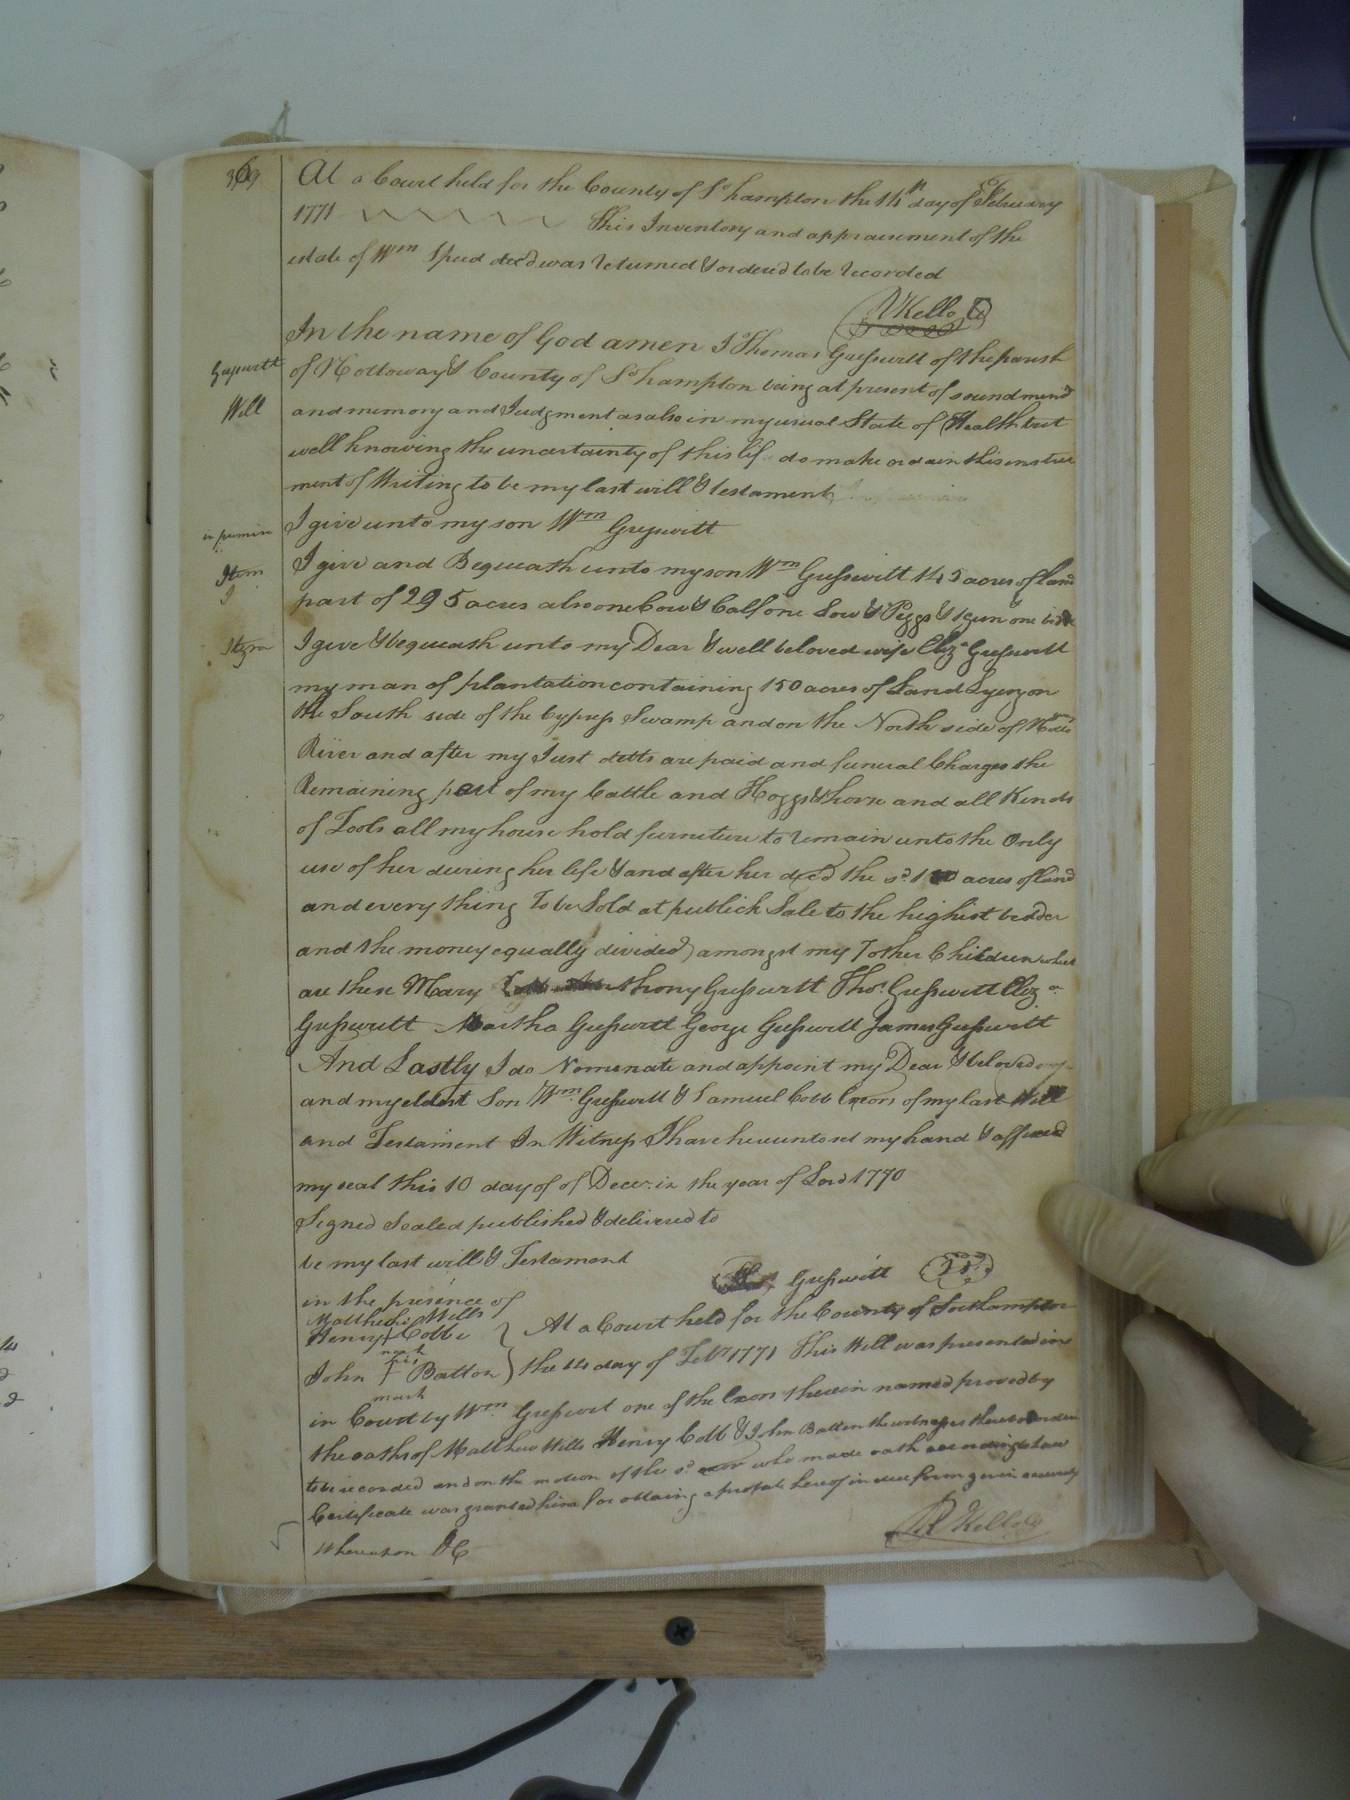 369
At a Court held for the County of Sohampton the 14th day of February
1771 This Inventory and appraisement of the
estate of Wm Speed decd was returned & ordered to be recorded
R Kello
Gresswitt
Will
In the name of God amen I Thomas Gresswitt of the parish
of Nottoway & County of Sohampton being at present of sound mind
and memory and Judgment as also in my usual State of Health but
well knowing the uncertainty of this life do make ordain this instru
ment of Writing to be my last will & testament
I give unto my son Wm Gresswitt
Item
I give and Bequeath unto my son Wm Gresswitt 145 acres of land
part of 295 acres also one Cow & Calf one Sow & Piggs & 1 gun one
Item
I give & bequeath unto my Dear & well beloved wife Eliza Gresswitt
my man of plantation containing 150 acres of Land Lyeing on
the South side of the Cypress Swamp and on the North side of
River and after my Just debts are paid and funeral Charges the
Remaining part of my Cattle and Hoggs & horse and all Kinds
of Tools all my house hold furneture to remain unto the Only
use of her during her life & and after her decd the sd acres of land
and every thing To be Sold at publick Sale to the highest bidder
and the money equally divided amongst my 7 other Children
are these Mary thony Gresswitt Thos Gresswitt Eliza
Gresswitt Martha Gresswitt George Gresswitt James Gresswitt
And Lastly I do Nomenate and appoint my Dear & beloved
and my eldest Son Wm Gresswitt & Samuel Cobb Exors of my last Will
and Testament In Witness I have hereunto set my hand & affixed
my seal this 10 day of of Decer in the year of Lord 1770
Signed Sealed published & delivered to
be my last will & Testament
Gresswitt
in the presence of
Matthew Wills
Henry Cobb
mark
John Batton
mark
At a Court held for the County of Southampton
the 14 day of Feby 1771 This Will was presented in
in Court by Wm Gresswit one of the Exors therein named proved by
the oaths of Matthew Wills Henry Cobb & John Batten the witnesses thereto
to be recorded and on the motion of the sd who made oath according to Law
Certificate was granted him for obtaing a probate hereof in due form
whereupon &C
R Kello